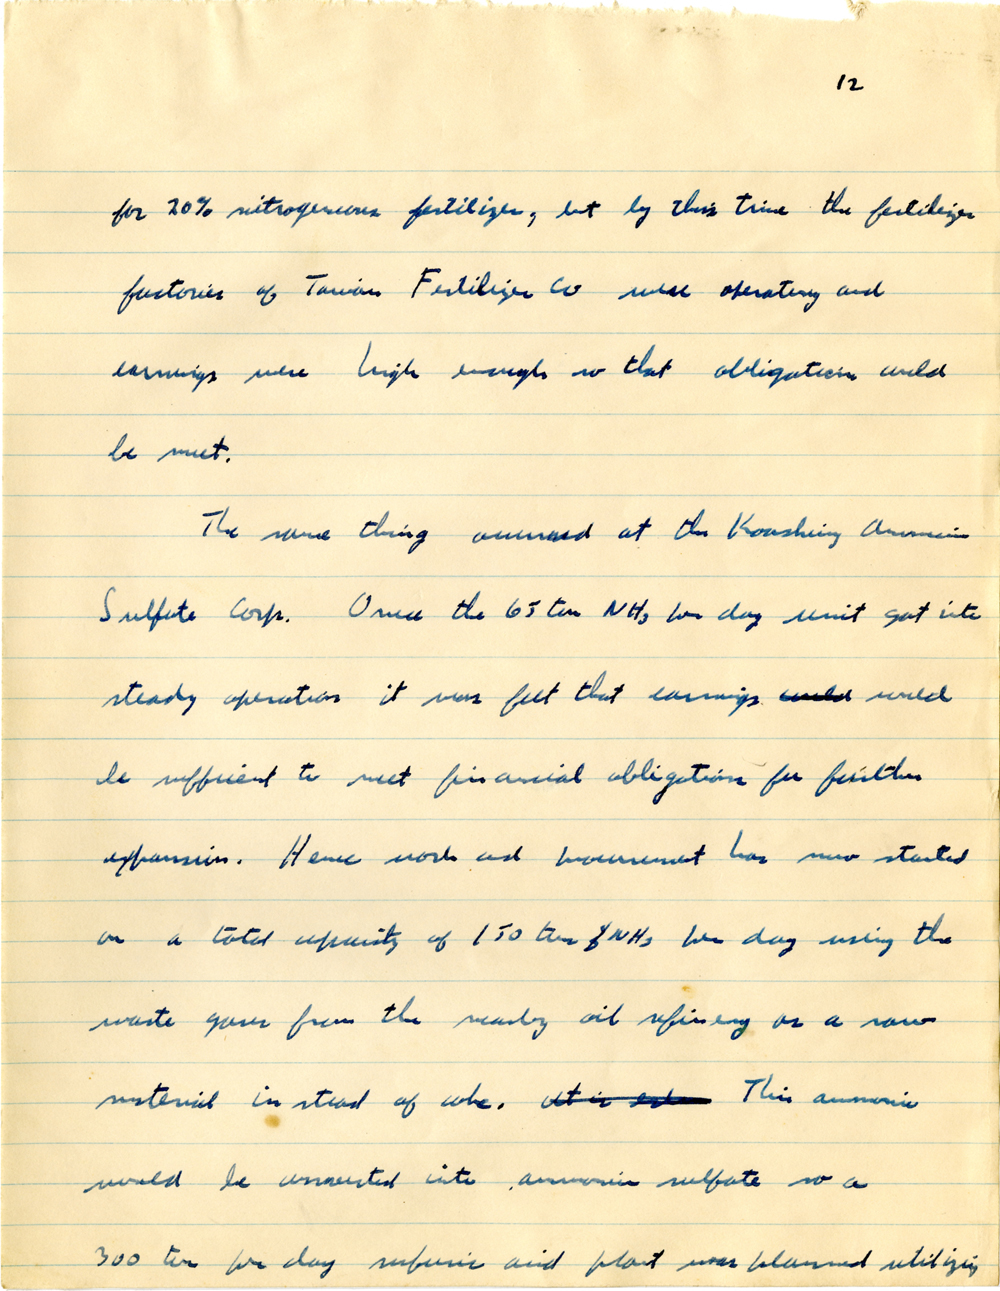 12
for 20% nitrogenous fertilizer, but by this time the fertilizer
factories of Taiwan Fertilizer Co were operating and
earnings were high enough so that obligations could
be met.
The same thing occurred at the Koashiung Ammonia
Sulfate Corp. Once the 65 ton NH3 per day unit got into
steady operation it was felt that earnings could would
be sufficient to meet financial obligations for further
expansion. Hence work and procurement has now started
on a total capacity of 150 tons NH3 per day using the
waste gases from the nearby oil refinery as a raw
material in stead of coke. This ammonia
would be converted into ammonia sulfate so a
300 ton per day sulfuric acid plant was planned utilizing